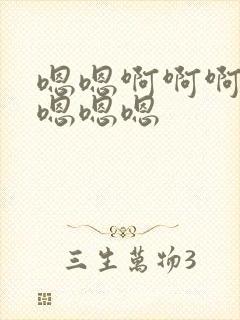 嗯嗯啊啊啊
嗯嗯嗯
三生萬物3